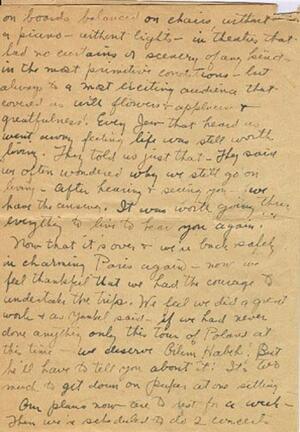 on boards balanced on chairs without
a piano - without lights - in theatres that
had no curtains or scenery of any kind -
in the most primitive conditions - but
always to a most exciting audience that
covered us with flowers & applause &
greatfulness. Every Jew that heard us
went away feeling life was still worth
living. They told us just that - They said
we often wondered why we still go on
living - after hearing & seeing you - we
have the answer. It was worth going thru
everything to live to hear you again.
Now that it's over & we're back safely
in charming Paris again - now we
feel thankful that we had the courage to
undertake the trip. We feel we did a great
work & as Yankel said - if we had never
done anything only this tour of Poland at
this time - we deserve Oilem Habeh. But
he'll have to tell you about it! It's too
much to get down on paper at one sitting
Our plans now are to rest for a week -
Then we're scheduled to do 2 concerts